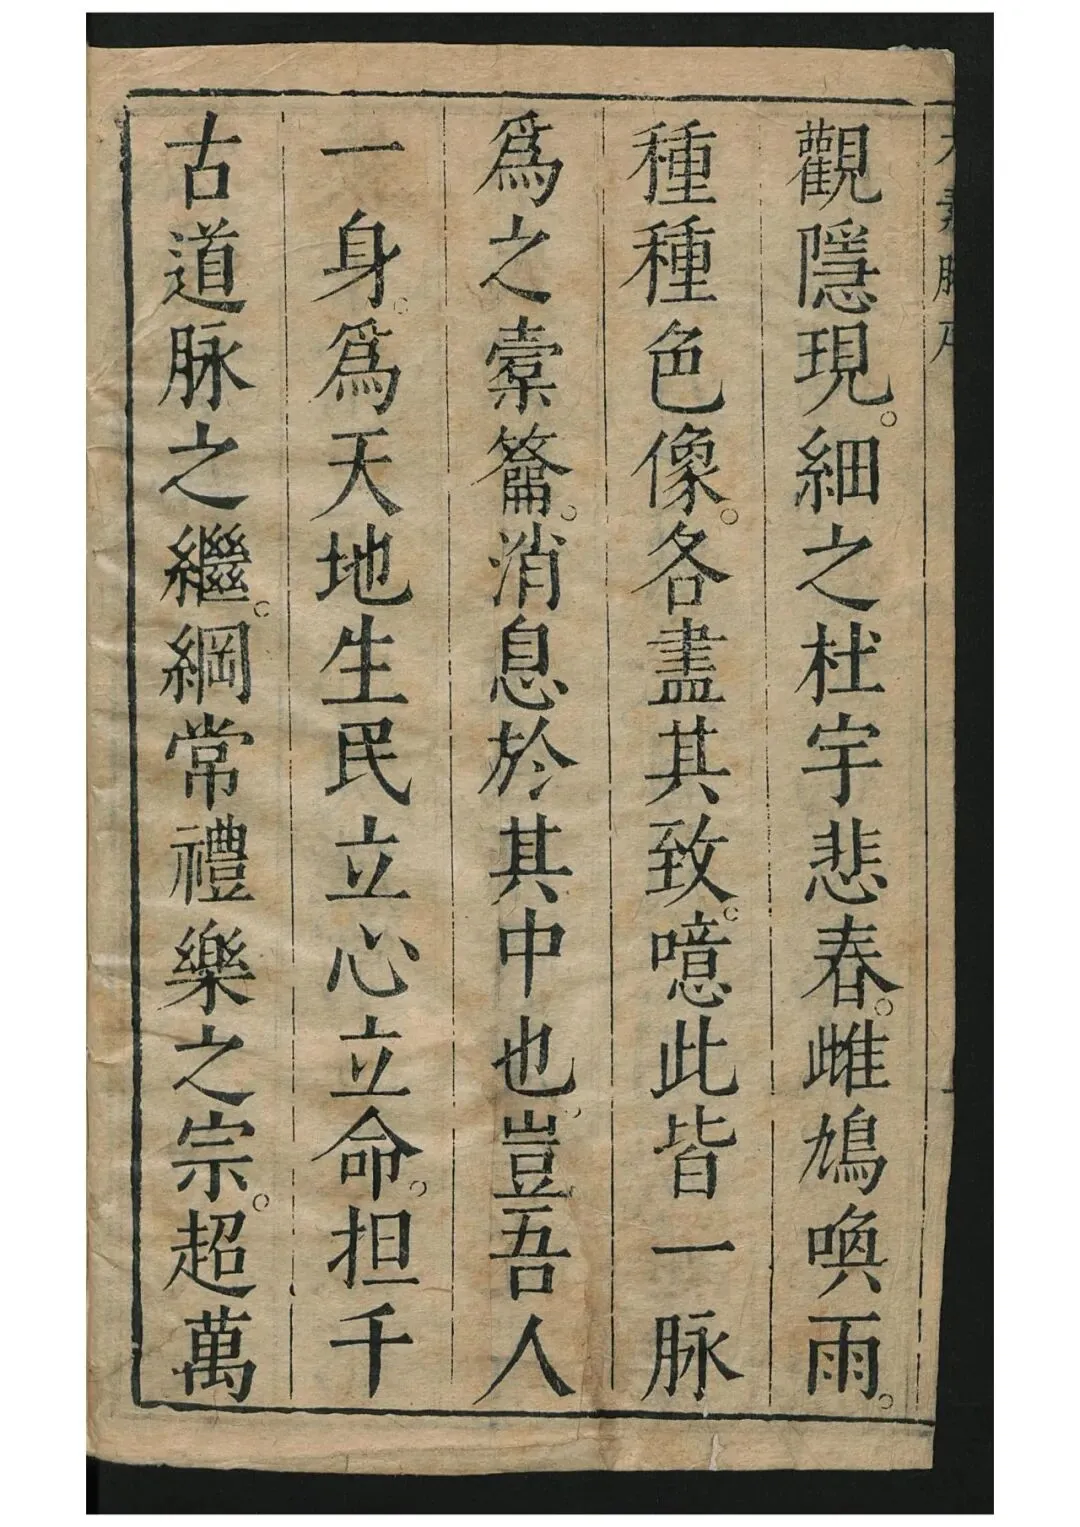 太素脉序
觀隱現。細之杜宇悲春。雌鳩喚雨。
種種色像。各盡其致。噫此皆一脉
為之橐籥。消息於其中也。豈吾人
一身。為天地生民立心立命。担千
古道脉之繼。綱常禮樂之宗。超萬